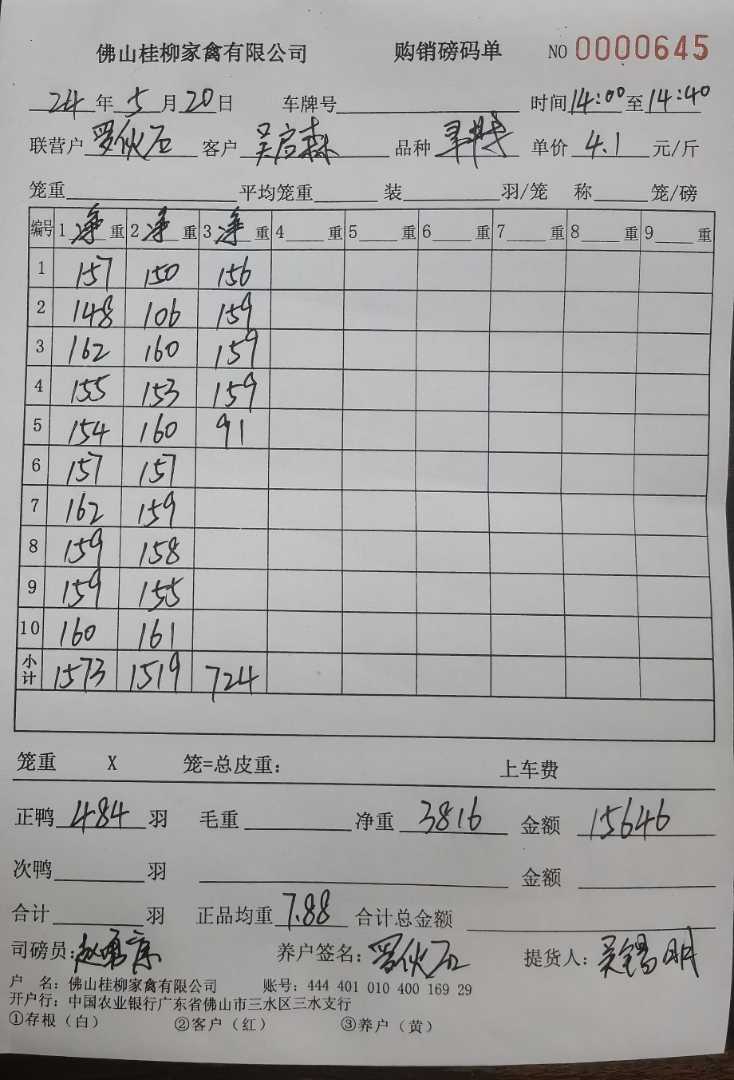 佛山桂柳家禽有限公司 购销磅码单 NO 0000645
24年5月20日 车牌号 时间14:00至14:40
联营户罗伙石 客户吴启森 品种 单价4.1元/斤
笼重 平均笼重 装 羽/笼 称 笼/磅
编号 1净重 2净重 3净重 4 重 5 重 6 重 7 重 8 重 9 重
1 157 150 156
2 148 106 159
3 162 160 159
4 155 153 159
5 154 160 91
6 157 157
7 162 159
8 159 158
9 159 155
10 160 161
小计 1573 1519 724
笼重 X 笼=总皮重: 上车费
正鸭484羽 毛重 净重3816 金额15646
次鸭 羽 金额
合计 羽 正品均重7.88 合计总金额
司磅员: 养户签名:罗伙石 提货人:吴锡明
户 名:佛山桂柳家禽有限公司 账号:444 401 010 400 169 29
开户行:中国农业银行广东省佛山市三水区三水支行
①存根(白) ②客户(红) ③养户(黄)